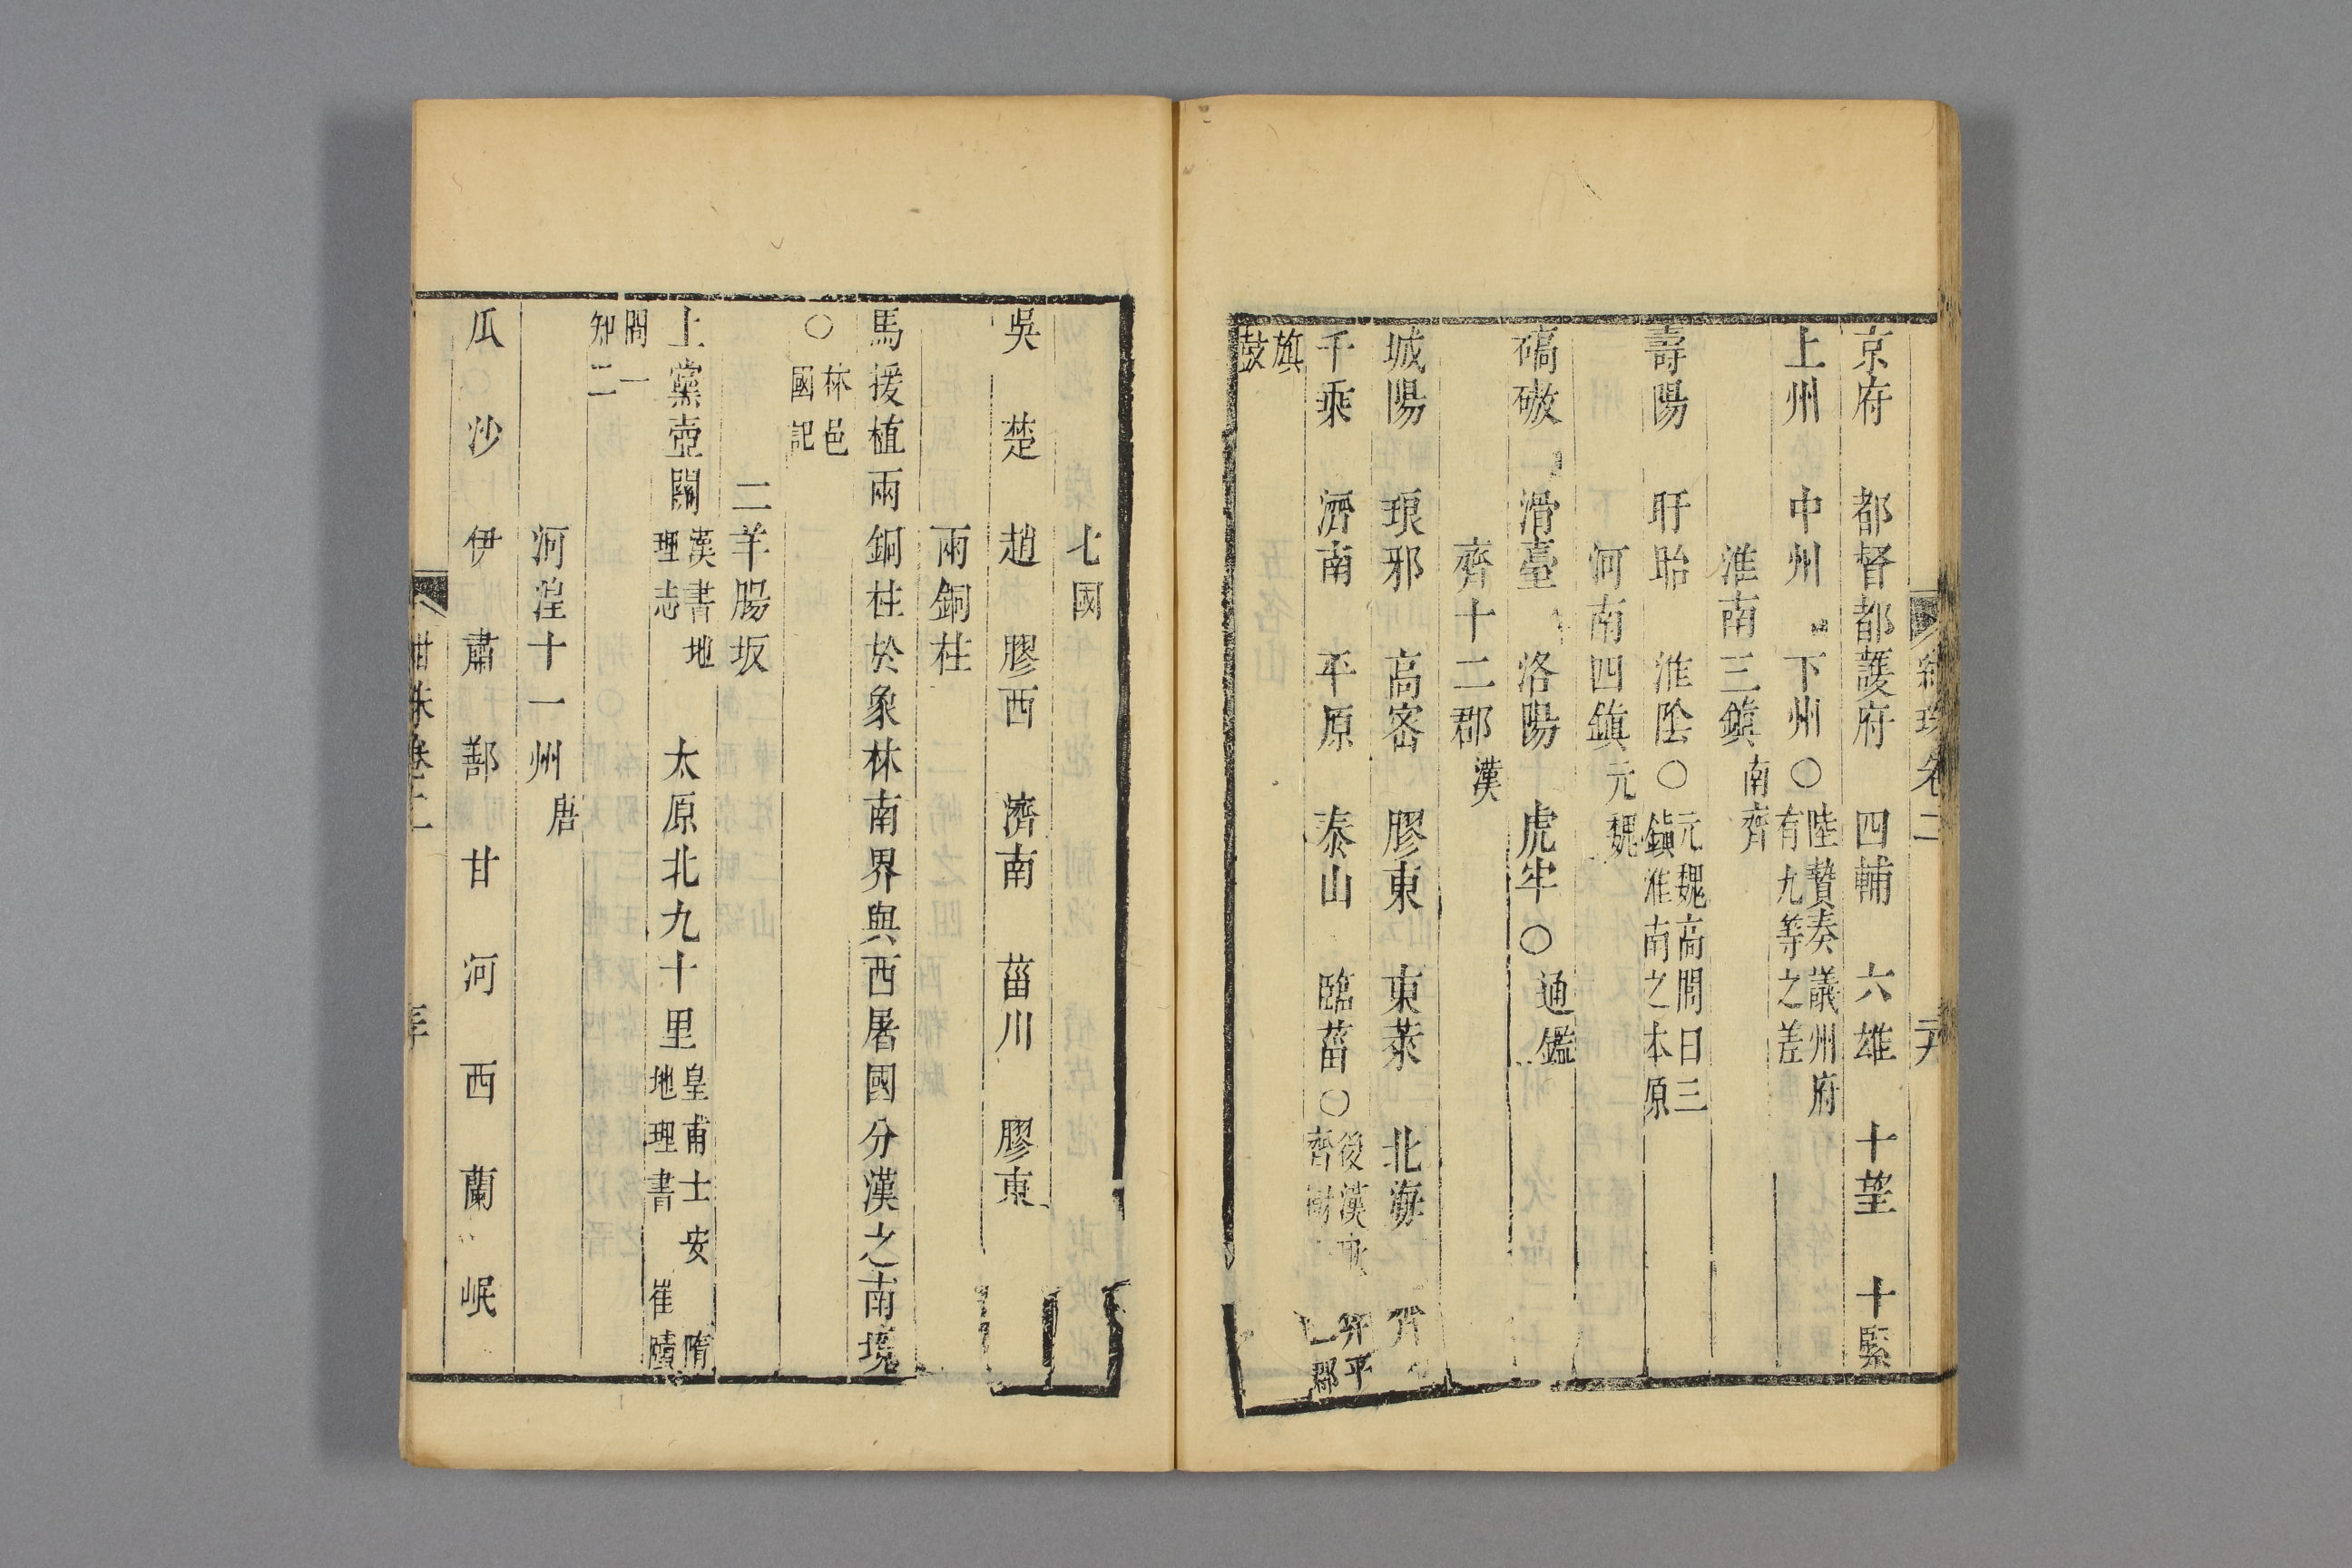 紺珠卷二 二十九
京府 都督都護府 四輔 六雄 十望 十緊
上州 中州 下州〇陸贄奏議州府有九等之差
淮南三鎮南齊
壽陽 盱眙 淮陰〇元魏高閭曰三鎮淮南之本原
河南四鎮元魏
碻磝 滑臺 洛陽 虎牢〇通鑑
齊十二郡漢
城陽 琅邪 高密 膠東 東萊 北海 齊
千乘 濟南 平原 泰山 臨菑〇後漢 弇平齊 郡
旗鼓
七國
吳 楚 趙 膠西 濟南 菑川 膠東
兩銅柱
馬援植兩銅柱於象林南界與西屠國分漢之南境
〇林邑國記
二羊腸坂
上黨壺關漢書地理志 太原北九十里皇甫士安地理書 隋崔賾
問一知二
河湟十一州唐
瓜 沙 伊 肅 鄯 甘 河 西 蘭 岷
紺珠卷二 三十